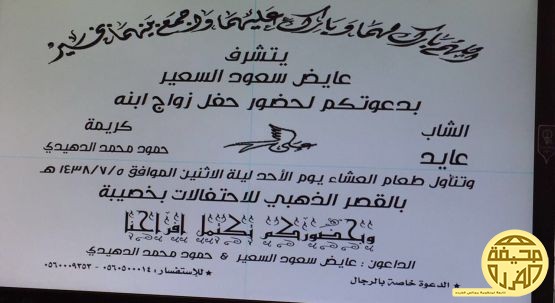 اللهم بارك لهما وبارك عليهما واجمع بينهما بخير
يتشرف
عايض سعود السعير
بدعوتكم لحضور حفل زواج ابنه
الشاب كريمة
عايد على حمود محمد الدهيدي
وتناول طعام العشاء يوم الأحد ليلة الاثنين الموافق ١٤٣٨/٧/٥ هـ
بالقصر الذهبي للاحتفالات بخصيبة
وبحضوركم تكتمل افراحنا
الداعون : عايض سعود السعير & حمود محمد الدهيدي
* الدعوة خاصة بالرجال * للاستفسار : ٠٥٦٠٥٠٠٠١٤ - ٠٥٦٠٠٠٩٣٥٣
صحيفة